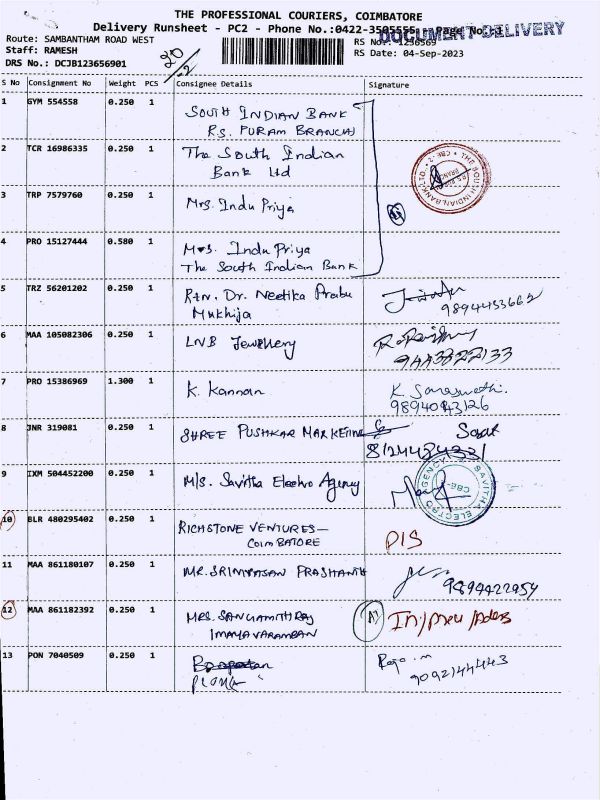 THE PROFESSIONAL COURIERS, COIMBATORE
Delivery Runsheet - PC2 - Phone No.:0422-3505555 Page No.:1
DOCUMENT DELIVERY
Route: SAMBANTHAM ROAD WEST
RS No.: 1236569
Staff: RAMESH
RS Date: 04-Sep-2023
DRS No.: DCJB123656901
S No Consignment No Weight PCS Consignee Details Signature
1 GYM 554558 0.250 1 SOUTH INDIAN BANK
R.S. PURAM BRANCH
2 TCR 16986335 0.250 1 The South Indian
Bank Ltd
THE SOUTH INDIAN BANK LTD. CBE-2
3 TRP 7579760 0.250 1 Mrs. Indu Priya
4 PRO 15127444 0.580 1 Mrs. Indu Priya
The South Indian Bank
5 TRZ 56201202 0.250 1 Rtn. Dr. Neetika Prabu
Mukhija
9894453662
6 MAA 105082306 0.250 1 LNB Jewellery
9443822133
7 PRO 15386969 1.300 1 K. Kannan K. Saraswathi.
9894043126
8 JNR 319081 0.250 1 SHREE PUSHKAR MARKETING Co
8124484331
9 IXM 504452200 0.250 1 M/s. Savitha Electro Agency
SAVITHA ELECTRO AGENCY CBE-
10 BLR 480295402 0.250 1 RICHSTONE VENTURES-
COIMBATORE
D/S
11 MAA 861180107 0.250 1 MR. SRINIVASAN PRASHANTH
9894422954
12 MAA 861182392 0.250 1 MRS. SANGAMITHRAJ
IMAYAVARAMBAN
13 PON 7040509 0.250 1
9092144443